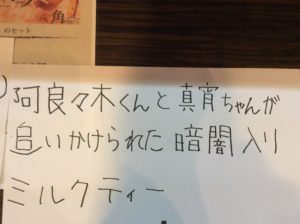 角
のセット
阿良々木くんと真宵ちゃんが
追いかけられた暗闇入り
ミルクティー